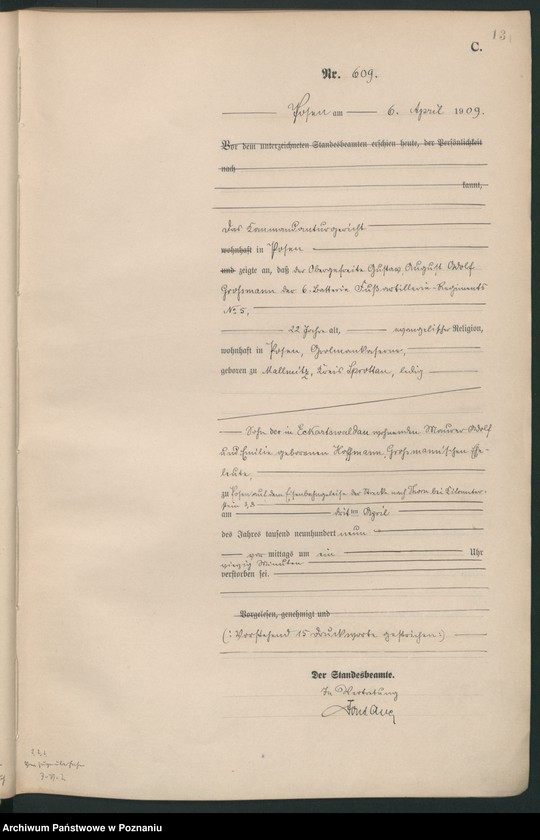 13
C.
Nr. 609.
Posen am 6. April 1909.
Vor dem unterzeichneten Standesbeamten erschien heute, der Persönlichkeit
nach
kannt,
Das Kommandanturgericht
wohnhaft in Posen
und zeigte an, daß der Obergefreite Gustav, August Adolf
Grohmann der 6. Batterie Fußartillerie-Regiments
No 5,
22 Jahre alt, evangelischer Religion,
wohnhaft in Posen, Grolmankaserne,
geboren zu Mallmitz, Kreis Sprottau, ledig
Sohn der in Eckartswaldau wohnenden Maurer Adolf
und Emilie geborenen Hoffmann, Grohmannschen Ehe-
leute,
zu Posen auf dem Eisenbahngeleise der Strecke nach Thorn bei Kilometer-
stein
am April
des Jahres tausend neunhundert neun
vor mittags um ein Uhr
vierzig Minuten
verstorben sei.
Vorgelesen, genehmigt und
(: Vorstehend 15 Druckworte gestrichen :)
Der Standesbeamte.
In Vertretung
Archiwum Państwowe w Poznaniu